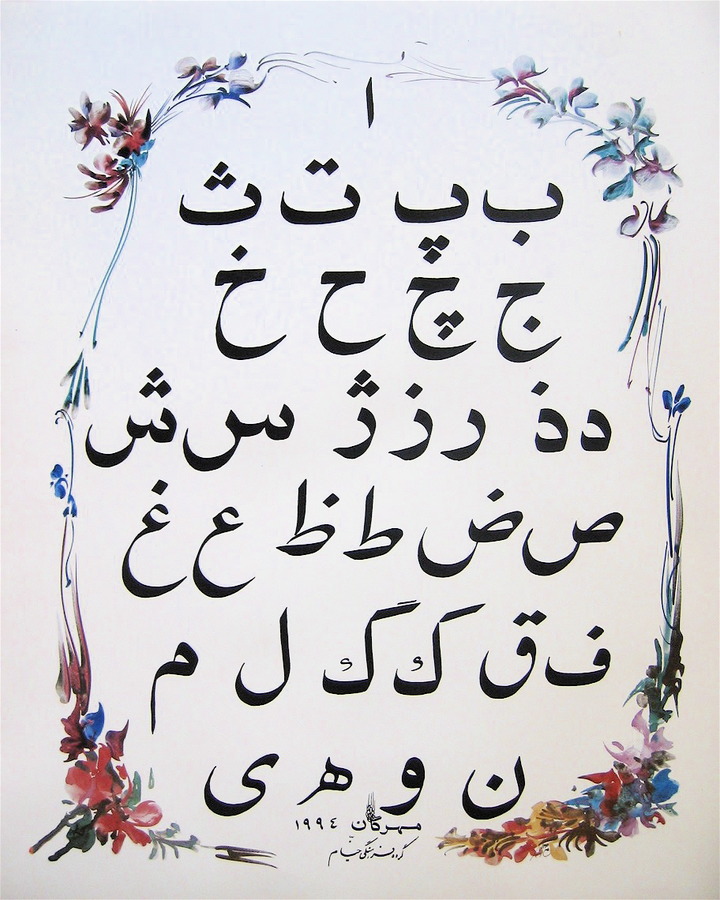 ا
ب پ ت ث
ج چ ح خ
د ذ ر ز ژ س ش
ص ض ط ظ ع غ
ف ق ك گ ل م
ن و ه ی
مهرگان ١٩٩٤
گروه فرهنگی خیام